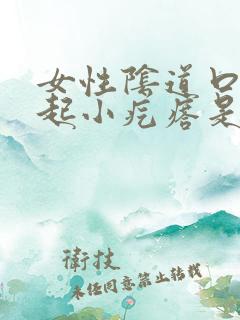 女性陰道口
起小疙瘩是
衛技
未经同意禁止转载